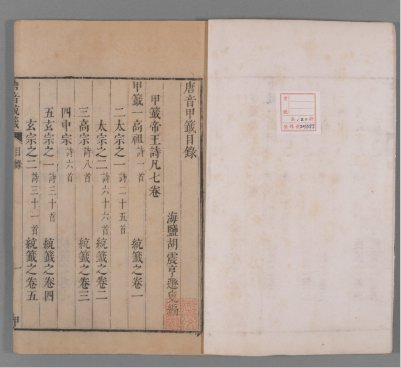 唐音甲籤目錄
海鹽胡震亨遯叟編
甲籤帝王詩凡七卷
甲籤一高祖詩一首 統籤之卷一
二太宗之一詩二十五首
太宗之二詩六十六首 統籤之卷二
三高宗詩八首 統籤之卷三
四中宗詩六首
五玄宗之一詩三十首 統籤之卷四
玄宗之二詩三十一首 統籤之卷五
唐音統籤 目錄 一 甲